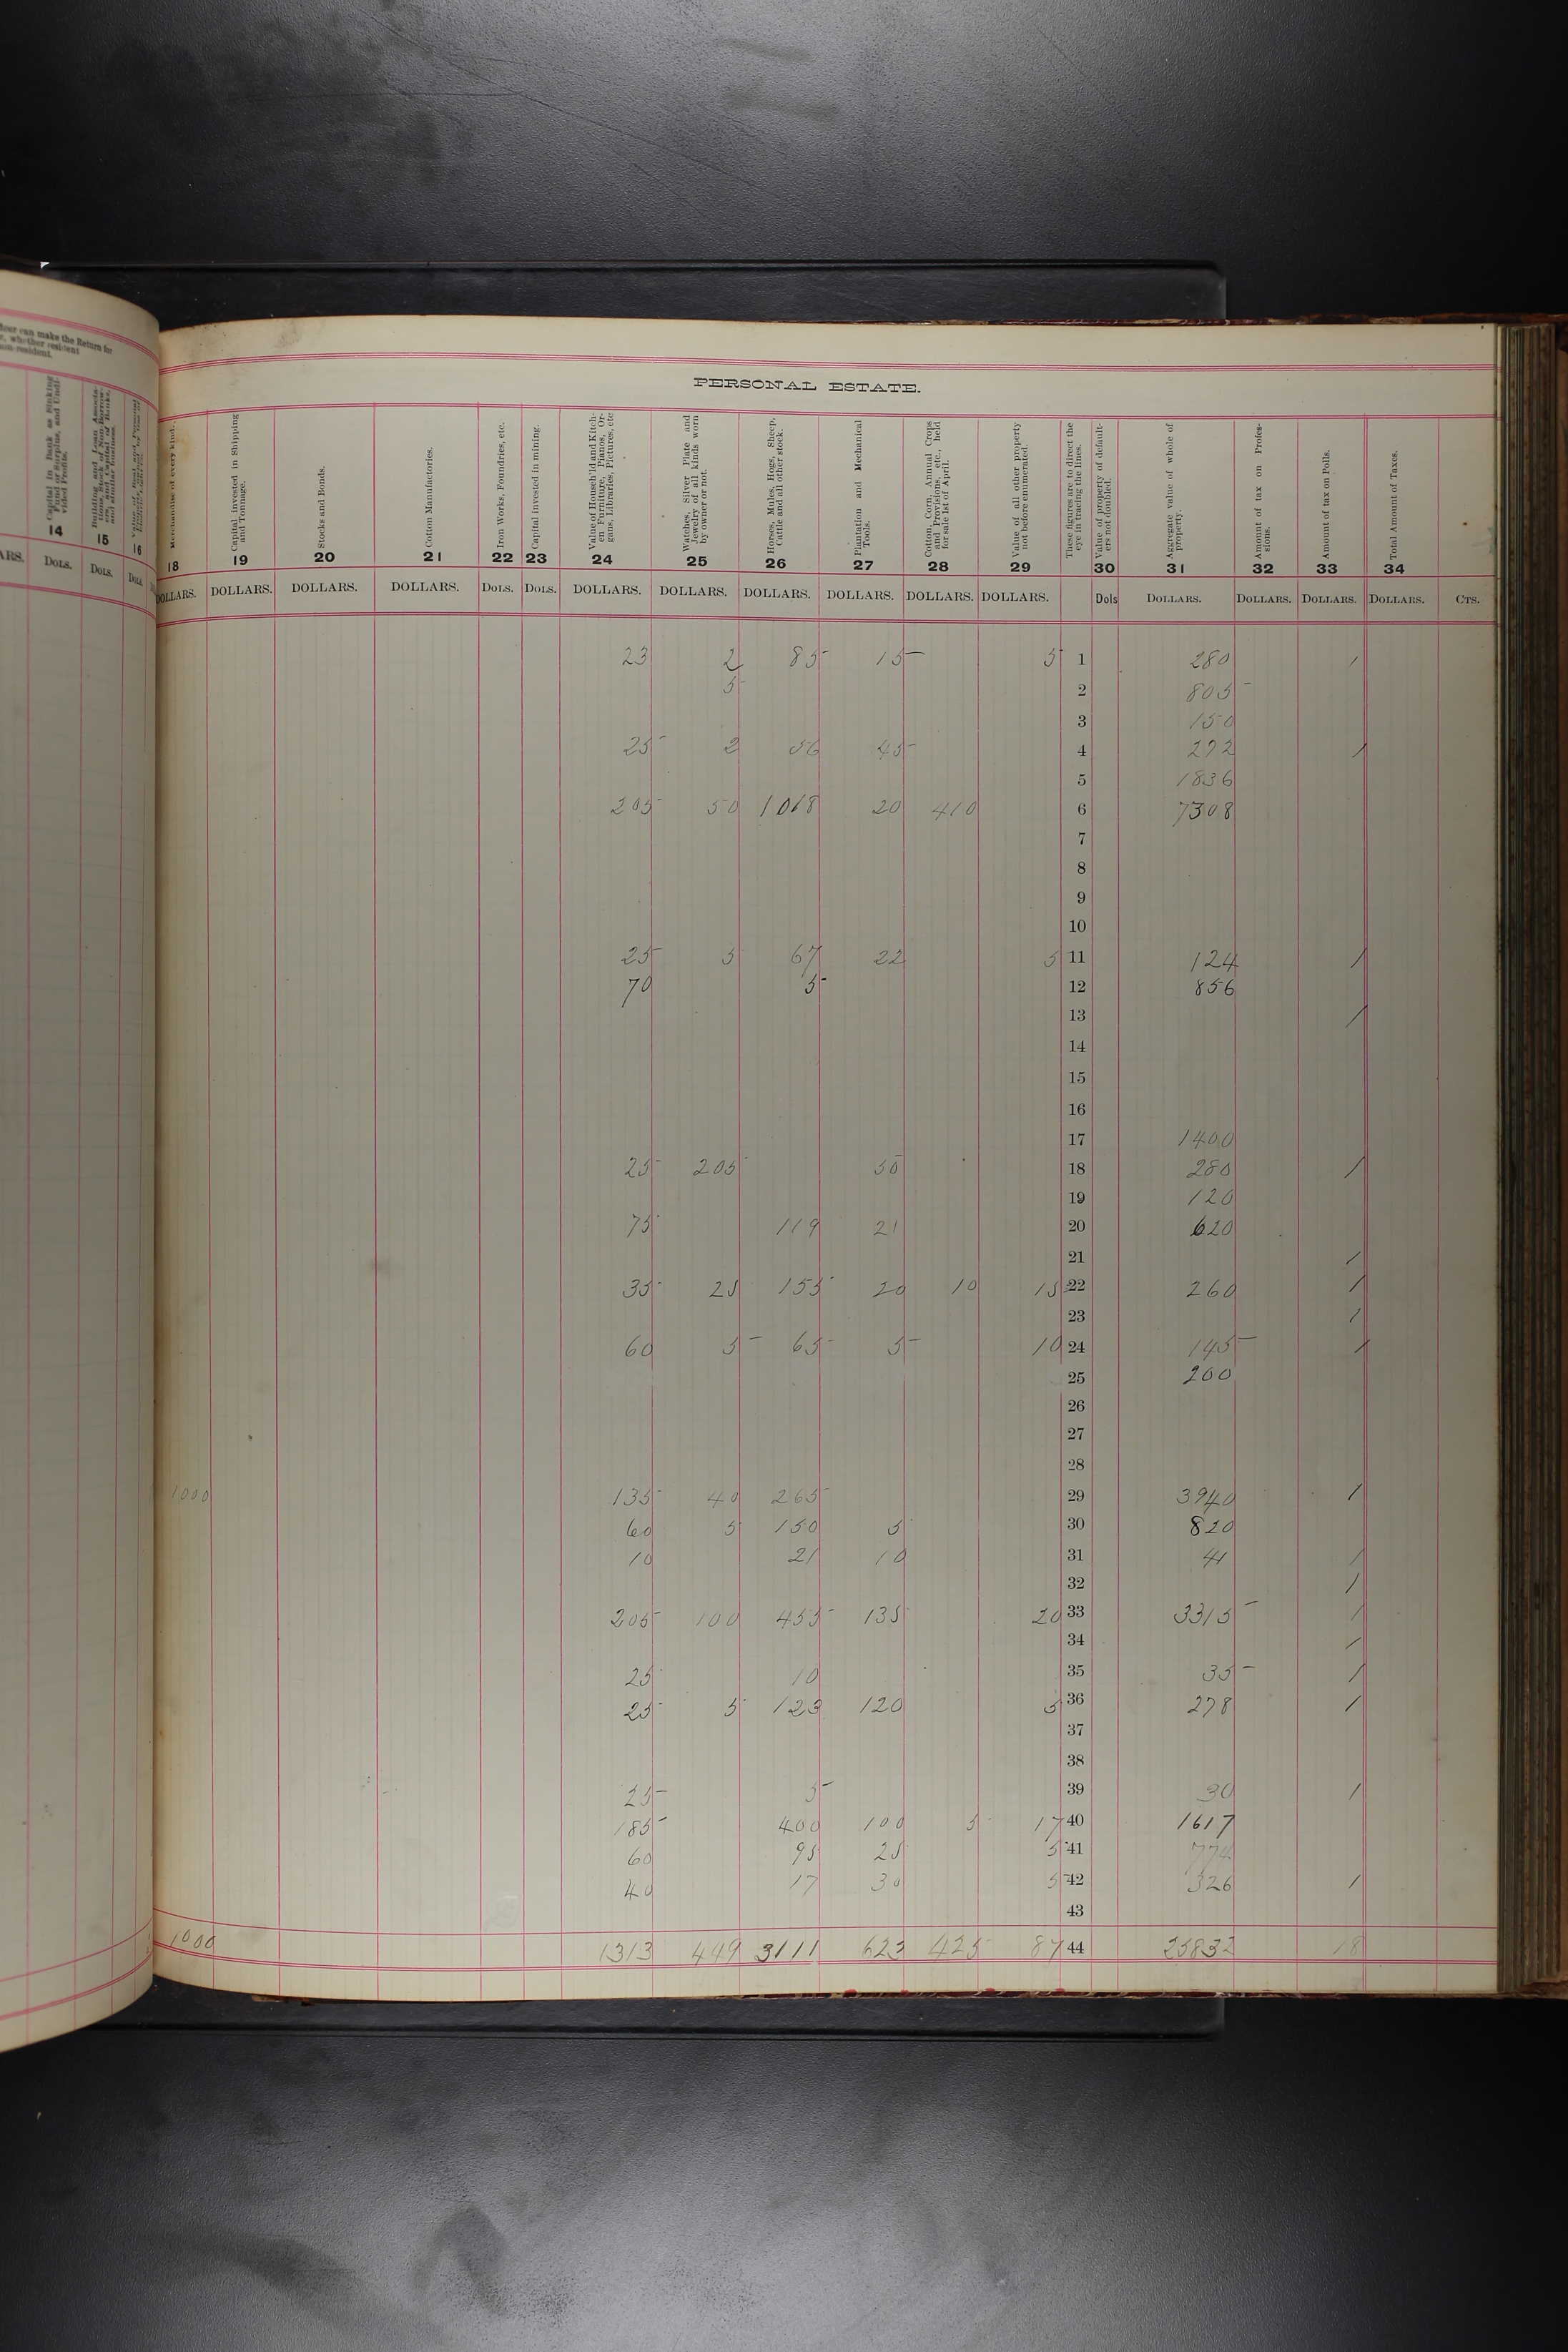 PERSONAL ESTATE.
Capital in Bank as Sinking Fund or Surplus, and Undivided Profits.
14
15
16
Merchandise of every kind.
18
Capital invested in Shipping and Tonnage.
19
Stocks and Bonds.
20
Cotton Manufactories.
21
Iron Works, Foundries, etc.
22
Capital invested in mining.
23
Value of Househ'ld and Kitchen Furniture, Pianos, Organs, Libraries, Pictures, etc
24
Watches, Silver Plate and Jewelry of all kinds worn by owner or not.
25
Horses, Mules, Hogs, Sheep, Cattle and all other stock.
26
Plantation and Mechanical Tools.
27
Cotton, Corn, Annual Crops and Provisions, etc., held for sale 1st of April.
28
Value of all other property not before enumerated.
29
These figures are to direct the eye in tracing the lines.
Value of property of defaulters not doubled.
30
Aggregate value of whole of property.
31
Amount of tax on Professions.
32
Amount of tax on Polls.
33
Total Amount of Taxes.
34
DOLS. DOLS. DOLS. DOLLARS. DOLLARS. DOLLARS. DOLLARS. DOLS. DOLS. DOLLARS. DOLLARS. DOLLARS. DOLLARS. DOLLARS. DOLLARS. Dols DOLLARS. DOLLARS. DOLLARS. DOLLARS. CTS.
23 2 85 15 5 1 280 1
5 2 805
3 150
25 2 56 45 4 272 1
5 1836
205 50 1068 20 410 6 7308
7
8
9
10
25 5 67 22 5 11 124 1
70 5 12 856
13 1
14
15
16
17 1400
25 205 50 18 280 1
19 120
75 119 21 20 620
21 1
35 25 155 20 10 15 22 260 1
23 1
60 5 65 5 10 24 145 1
25 200
26
27
28
1000 135 40 265 29 3940 1
60 5 150 5 30 820
10 21 10 31 41 1
32 1
205 100 455 135 20 33 3315 1
34 1
25 10 35 35 1
25 5 123 120 5 36 278 1
37
38
25 5 39 30 1
185 400 100 5 17 40 1617
60 95 25 5 41 774
40 17 30 5 42 326 1
43
1000 1313 449 3111 623 425 87 44 25832 18